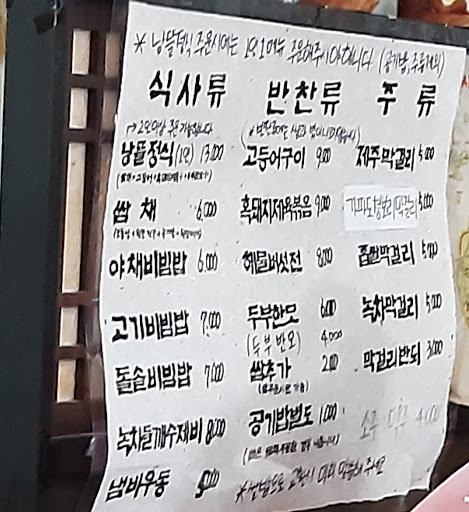 * 낭뜰정식 주문시에는 1인 1메뉴 주문해주셔야합니다 (공기밥, 주류제외)
식사류
→ 2인이상 주문가능합니다
낭뜰정식 (1인) 13,000
쌈채 6,000
야채비빔밥 6,000
고기비빔밥 7,000
돌솥비빔밥 7,000
녹차들깨수제비 8,000
냄비우동
반찬류
고등어구이 9,000
흑돼지제육볶음 9,000
해물버섯전 8,000
두부한모 6,000
(두부 반모) 4,000
쌈추가 2,000
공기밥별도 1,000
주류
제주막걸리 5,000
가파도청보리막걸리 5,000
좁쌀막걸리 5,000
녹차막걸리 5,000
막걸리반되 3,000
소주 맥주 4,000